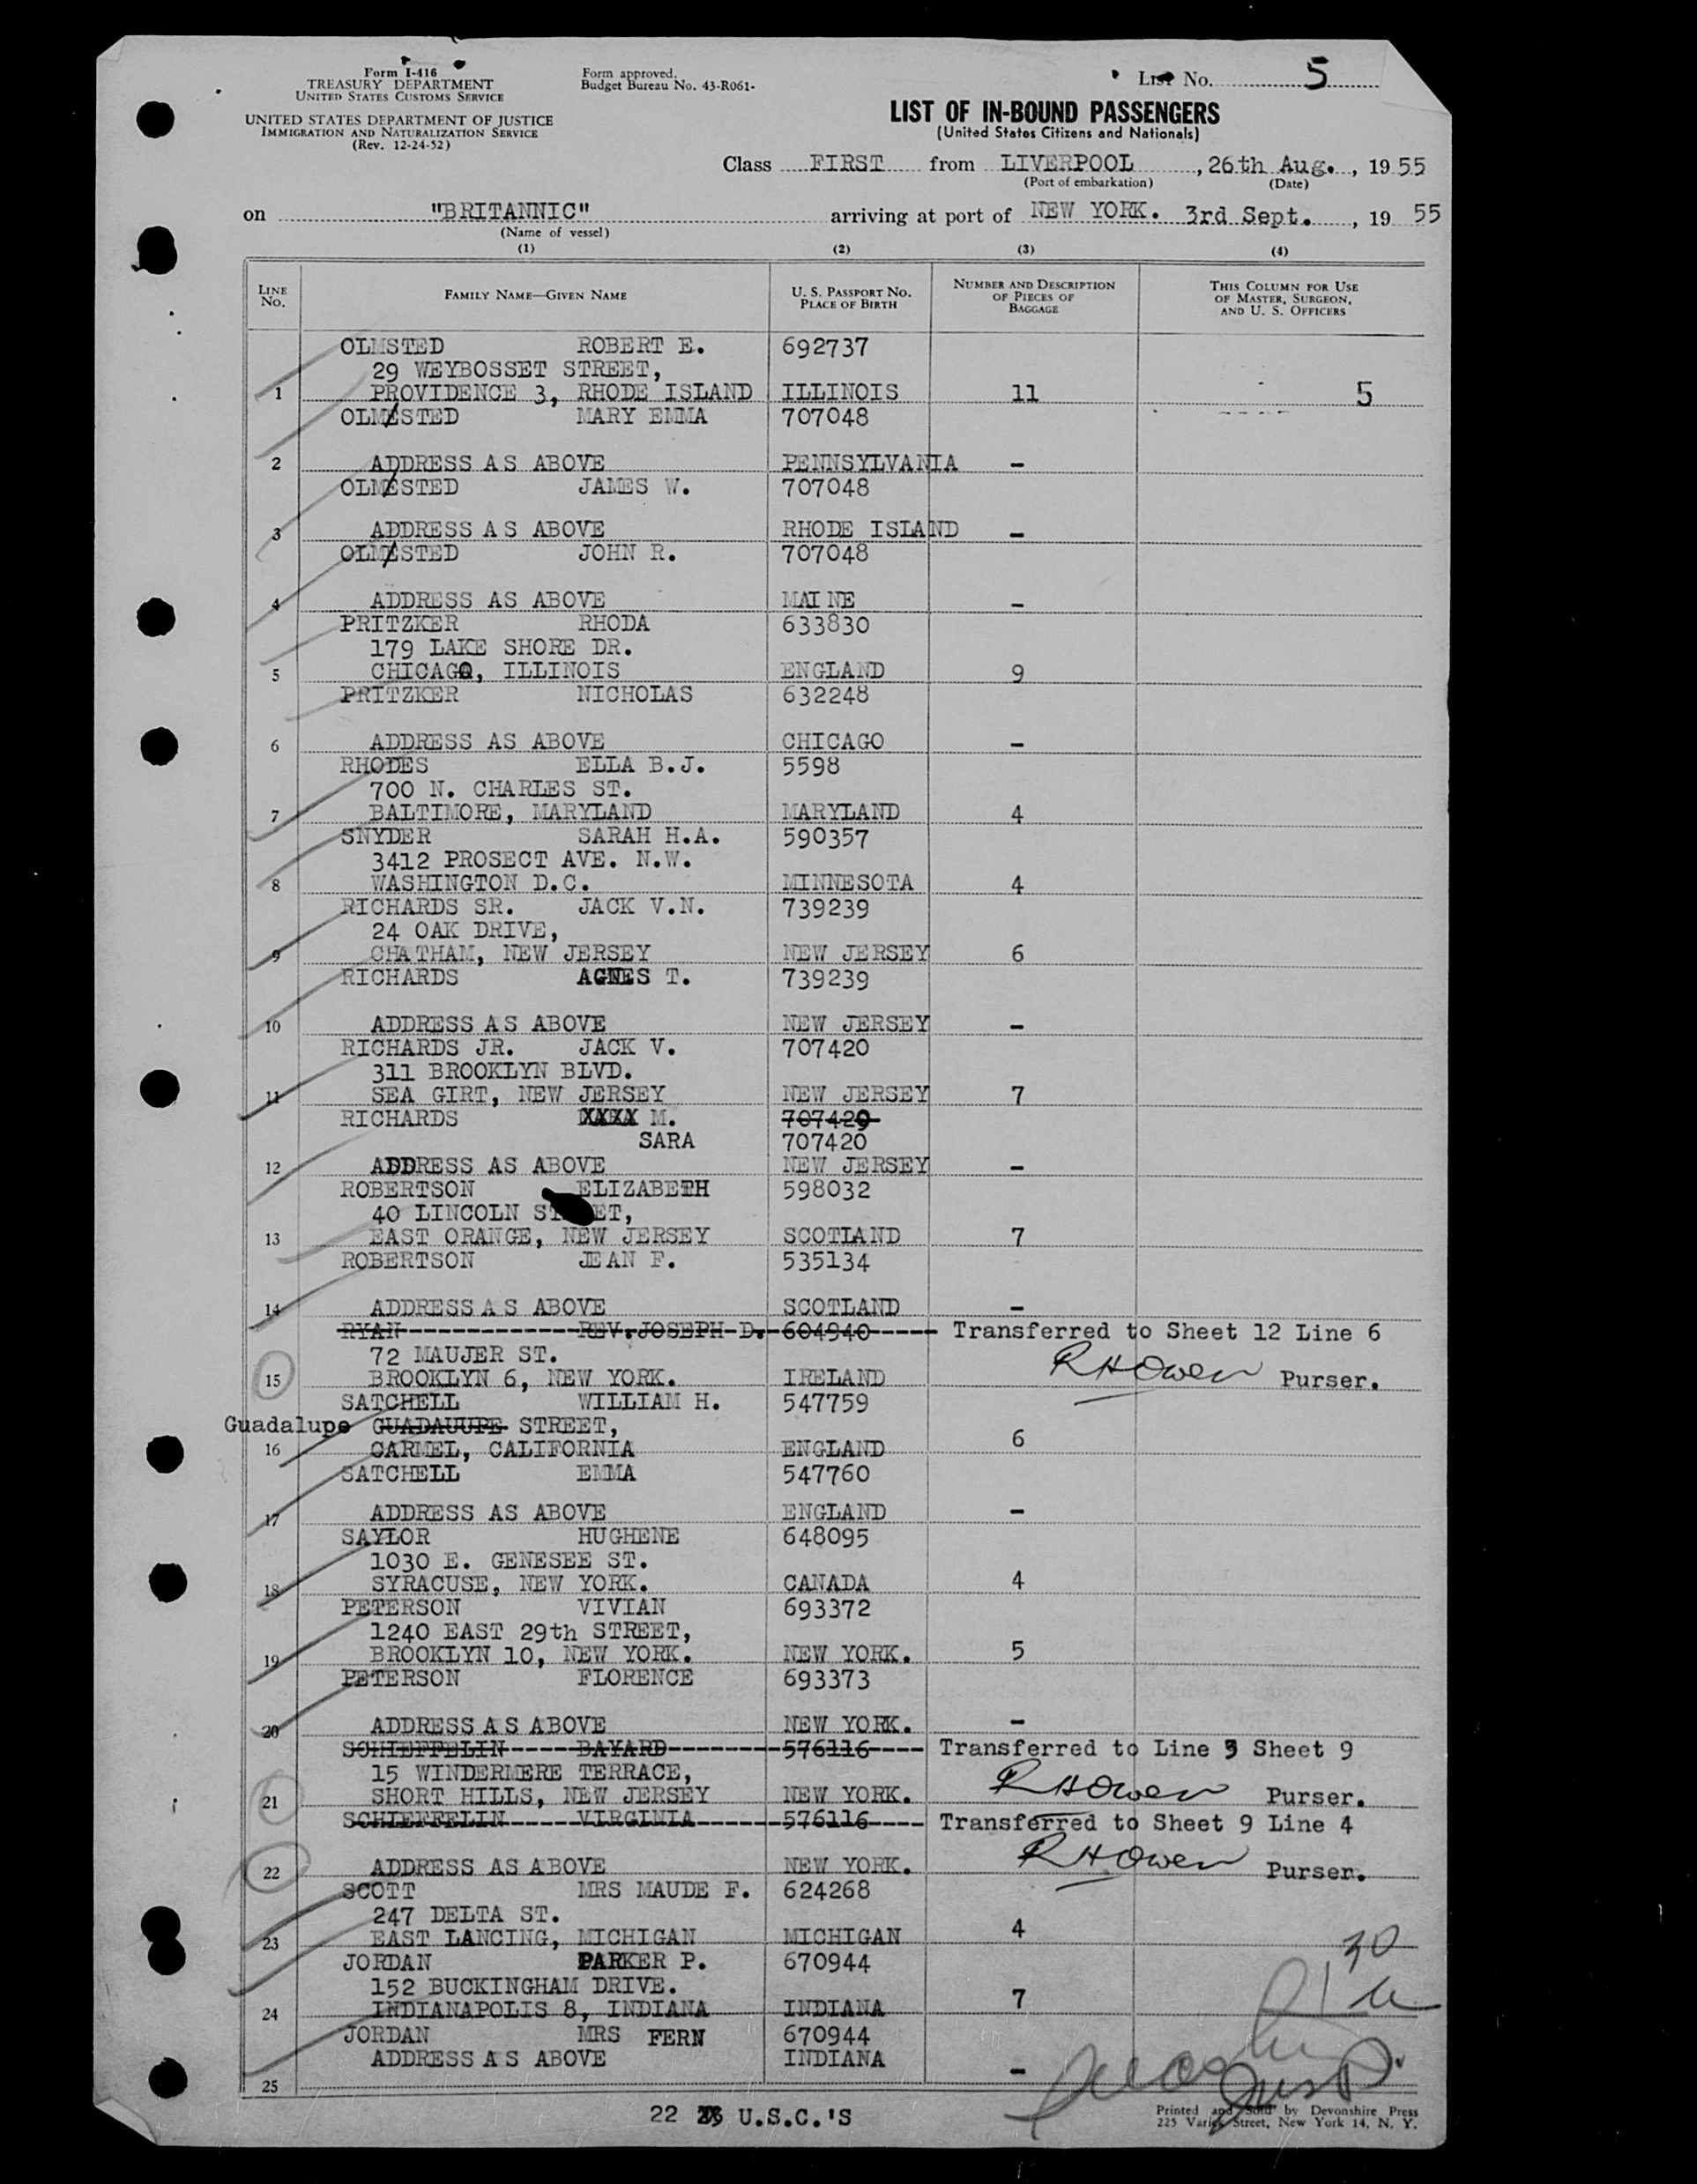 Form I-416
TREASURY DEPARTMENT
UNITED STATES CUSTOMS SERVICE
UNITED STATES DEPARTMENT OF JUSTICE
IMMIGRATION AND NATURALIZATION SERVICE
(Rev. 12-24-52)
Form approved.
Budget Bureau No. 43-R061-
List No. 5
LIST OF IN-BOUND PASSENGERS
(United States Citizens and Nationals)
Class FIRST from LIVERPOOL, 26th Aug., 1955
(Port of embarkation) (Date)
on "BRITANNIC" arriving at port of NEW YORK. 3rd Sept., 19 55
(Name of vessel)
(1) (2) (3) (4)
LINE No. FAMILY NAME—GIVEN NAME U. S. PASSPORT No. PLACE OF BIRTH NUMBER AND DESCRIPTION OF PIECES OF BAGGAGE THIS COLUMN FOR USE OF MASTER, SURGEON, AND U. S. OFFICERS
OLMSTED ROBERT E. 692737
29 WEYBOSSET STREET,
1 PROVIDENCE 3, RHODE ISLAND ILLINOIS 11 5
OLMESTED MARY EMMA 707048
2 ADDRESS AS ABOVE PENNSYLVANIA -
OLMESTED JAMES W. 707048
3 ADDRESS AS ABOVE RHODE ISLAND -
OLMESTED JOHN R. 707048
4 ADDRESS AS ABOVE MAINE -
PRITZKER RHODA 633830
179 LAKE SHORE DR.
5 CHICAGO, ILLINOIS ENGLAND 9
PRITZKER NICHOLAS 632248
6 ADDRESS AS ABOVE CHICAGO -
RHODES ELLA B.J. 5598
700 N. CHARLES ST.
7 BALTIMORE, MARYLAND MARYLAND 4
SNYDER SARAH H.A. 590357
3412 PROSECT AVE. N.W.
8 WASHINGTON D.C. MINNESOTA 4
RICHARDS SR. JACK V.N. 739239
24 OAK DRIVE,
9 CHATHAM, NEW JERSEY NEW JERSEY 6
RICHARDS AGNES T. 739239
10 ADDRESS AS ABOVE NEW JERSEY -
RICHARDS JR. JACK V. 707420
311 BROOKLYN BLVD.
11 SEA GIRT, NEW JERSEY NEW JERSEY 7
RICHARDS M. 707420
SARA 707420
12 ADDRESS AS ABOVE NEW JERSEY -
ROBERTSON ELIZABETH 598032
40 LINCOLN STREET,
13 EAST ORANGE, NEW JERSEY SCOTLAND 7
ROBERTSON JEAN F. 535134
14 ADDRESS AS ABOVE SCOTLAND -
RYAN REV. JOSEPH D. 604940 Transferred to Sheet 12 Line 6
72 MAUJER ST.
15 BROOKLYN 6, NEW YORK. IRELAND RHOwen Purser.
SATCHELL WILLIAM H. 547759
Guadalupe GUADAUUPE STREET,
16 CARMEL, CALIFORNIA ENGLAND 6
SATCHELL EMMA 547760
17 ADDRESS AS ABOVE ENGLAND -
SAYLOR HUGHENE 648095
1030 E. GENESEE ST.
18 SYRACUSE, NEW YORK. CANADA 4
PETERSON VIVIAN 693372
1240 EAST 29th STREET,
19 BROOKLYN 10, NEW YORK. NEW YORK. 5
PETERSON FLORENCE 693373
20 ADDRESS AS ABOVE NEW YORK. -
SCHIEFFELIN BAYARD 576116 Transferred to Line 3 Sheet 9
15 WINDERMERE TERRACE,
21 SHORT HILLS, NEW JERSEY NEW YORK. RHOwen Purser.
SCHIEFFELIN VIRGINIA 576116 Transferred to Sheet 9 Line 4
22 ADDRESS AS ABOVE NEW YORK. RHOwen Purser.
SCOTT MRS MAUDE F. 624268
247 DELTA ST.
23 EAST LANCING, MICHIGAN MICHIGAN 4
JORDAN PARKER P. 670944
152 BUCKINGHAM DRIVE.
24 INDIANAPOLIS 8, INDIANA INDIANA 7
JORDAN MRS FERN 670944
ADDRESS AS ABOVE INDIANA -
25
22 U.S.C.'S
Printed and Sold by Devonshire Press
225 Varick Street, New York 14, N. Y.